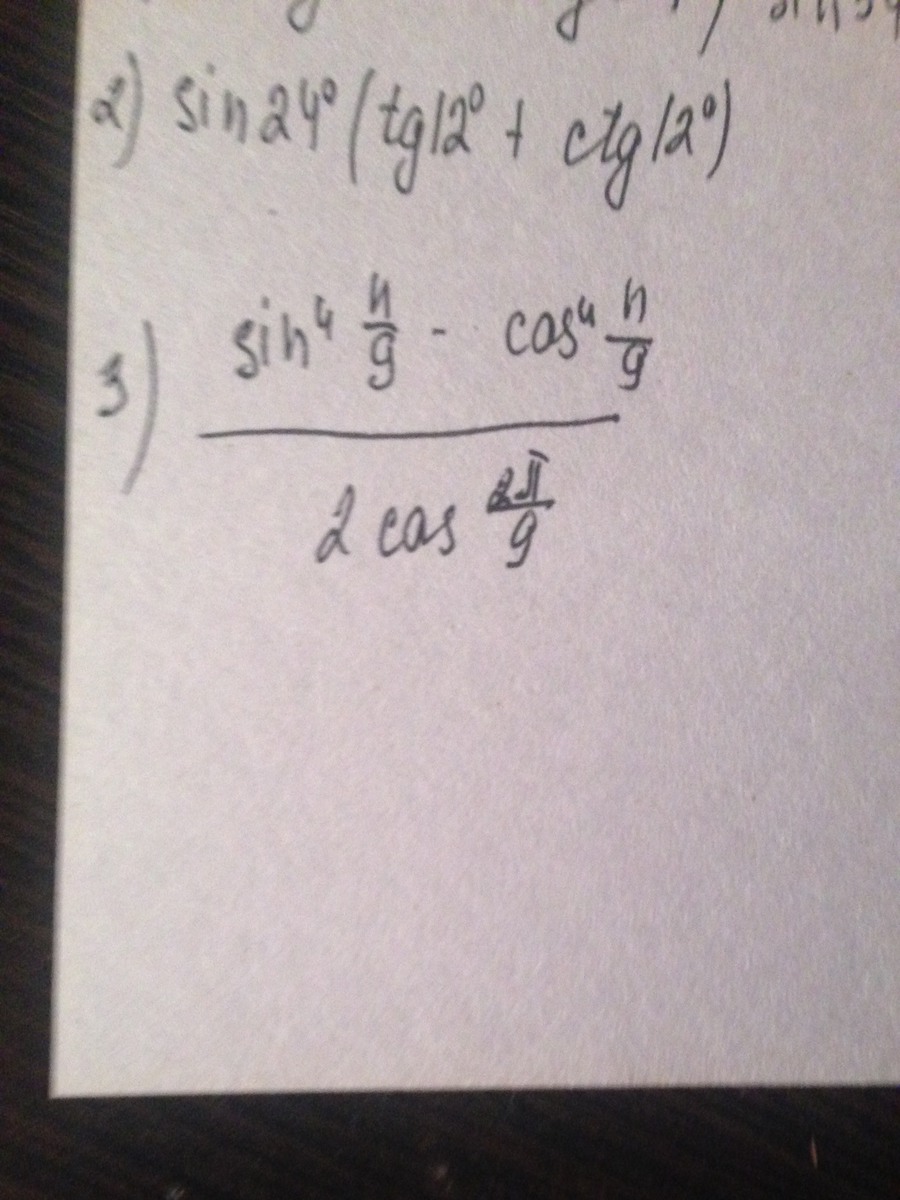 2) sin 24° (tg12° + ctg12°)
3) sin⁴ π/9 - cos⁴ π/9
2 cos 2π/9